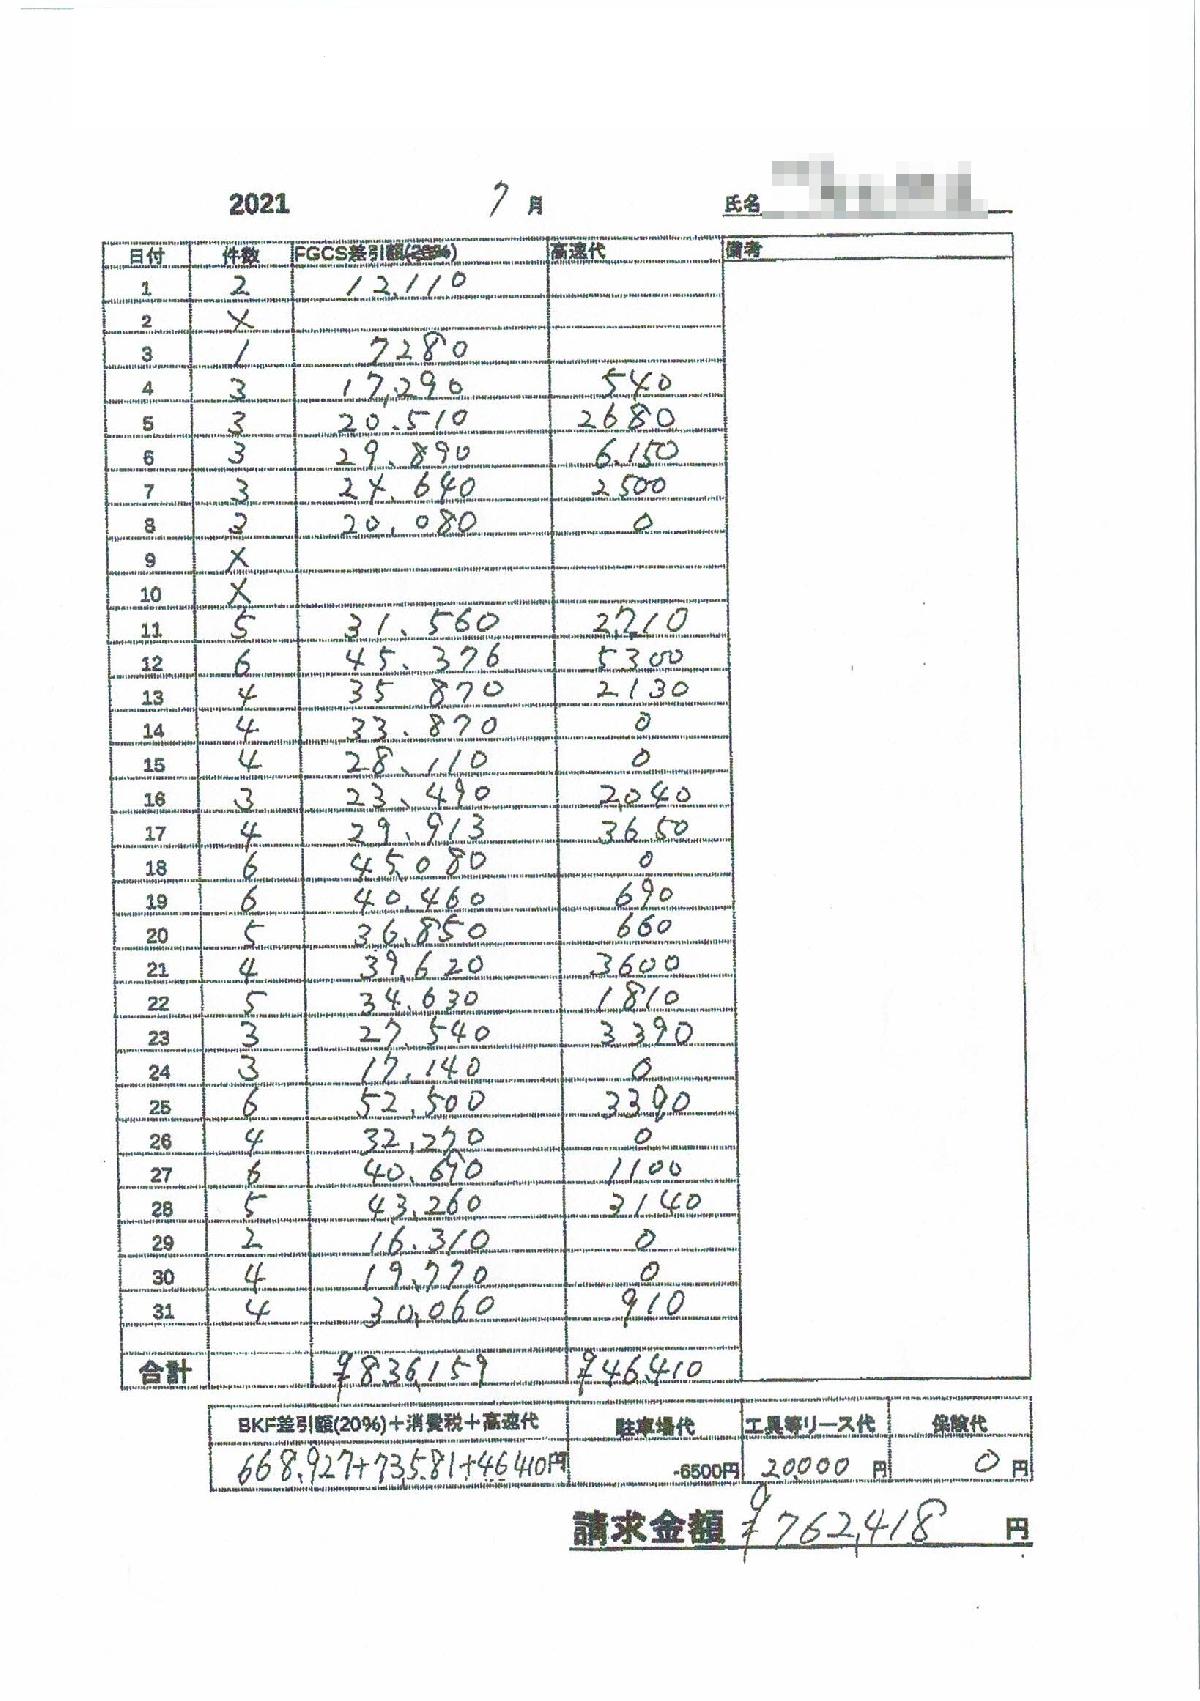 2021 7月 氏名
日付 件数 FGCS差引額 高速代 備考
1 2 12,110
2 X
3 1 7280
4 3 17,290 540
5 3 20.510 2680
6 3 29.890 6.150
7 3 24.640 2500
8 2 20.080 0
9 X
10 X
11 5 31.560 2,710
12 6 45.376 5300
13 4 35 870 2130
14 4 33.870 0
15 4 28.110 0
16 3 23.490 2040
17 4 29.913 3650
18 6 45,080 0
19 6 40.460 690
20 5 36.850 660
21 4 39,620 3600
22 5 34.630 1810
23 3 27.540 3390
24 3 17,140 0
25 6 52,500 3390
26 4 32,270 0
27 6 40.690 1100
28 5 43,260 3140
29 2 16.310 0
30 4 19.770 0
31 4 30,060 910
合計 ¥836,159 ¥46,410
BKF差引額(20%)＋消費税＋高速代 駐車場代 工具等リース代 保険代
668,927+73,581+46410円 -6500円 20,000円 0円
請求金額 ¥762,418 円